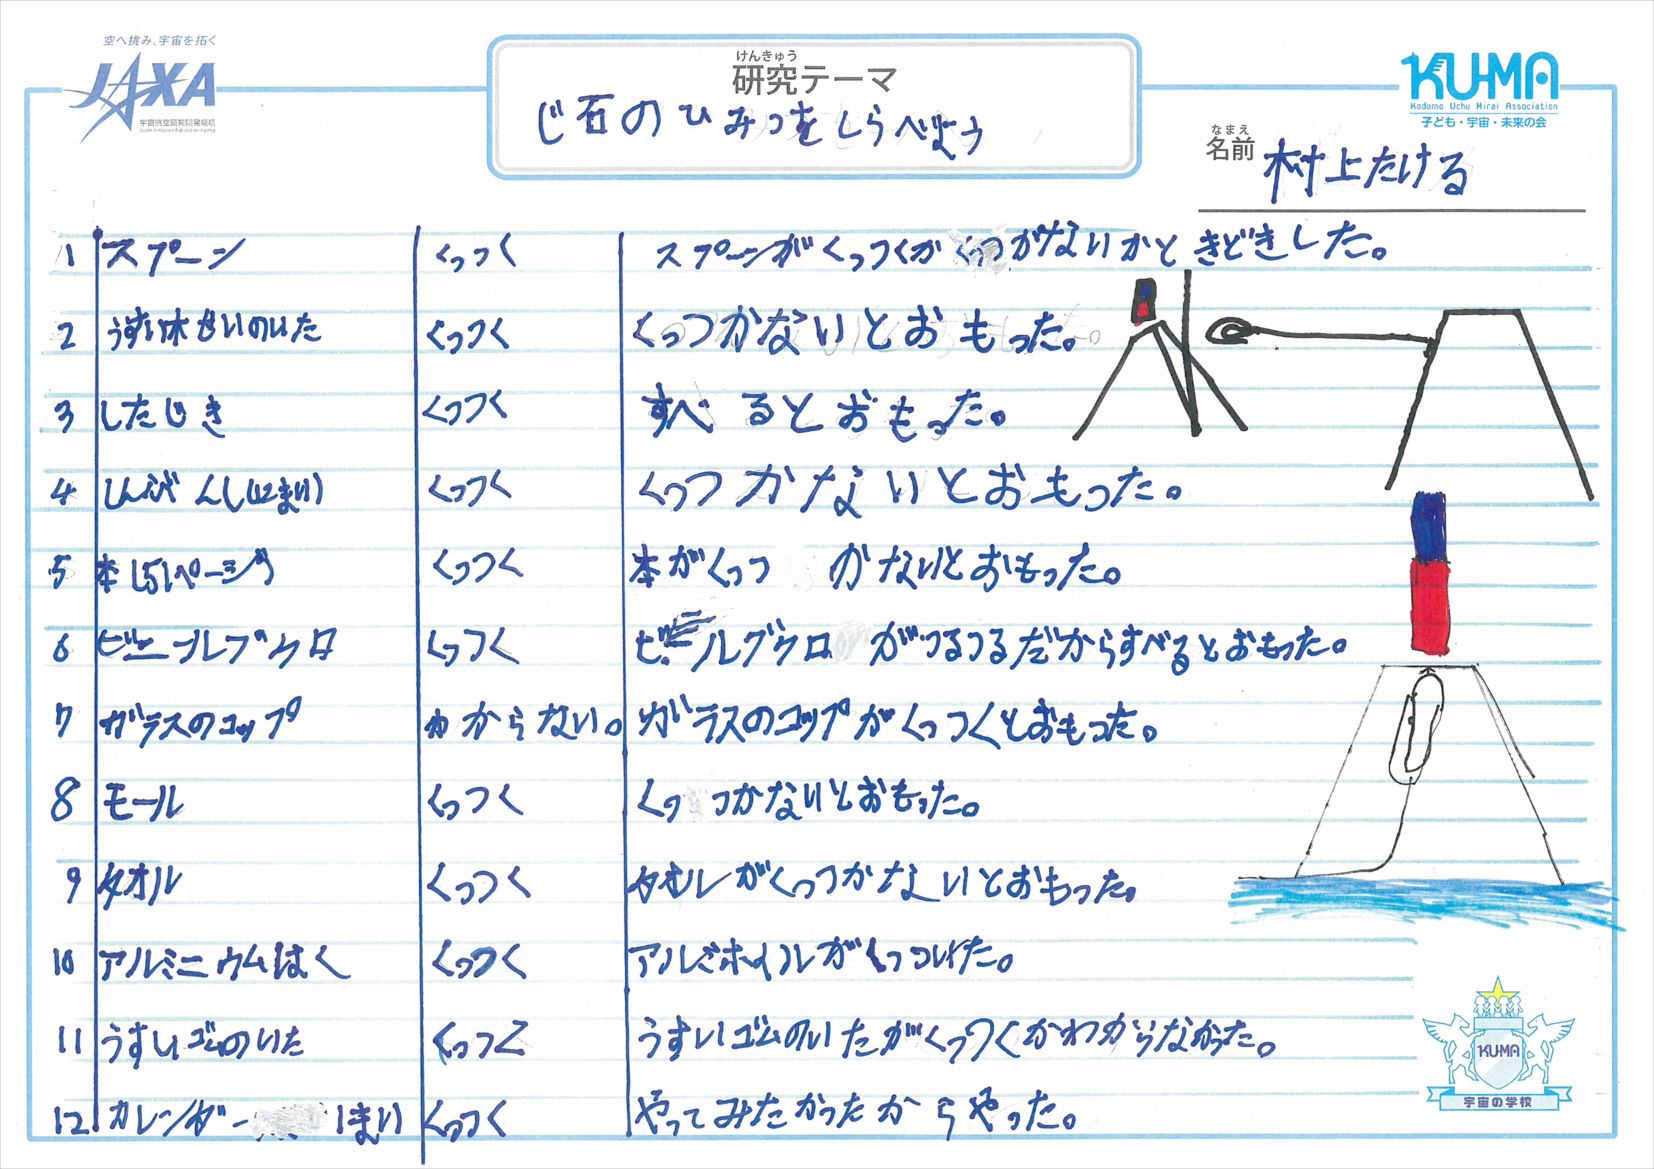 空へ挑み、宇宙を拓く
JAXA
宇宙航空研究開発機構
Japan Aerospace Exploration Agency
けんきゅう
研究テーマ
じ石のひみつをしらべよう
KU-MA
Kodomo Uchu Mirai Association
子ども・宇宙・未来の会
なまえ
名前 村上たける
1 スプーン くっつく スプーンがくっつくか くっつがないかときどきした。
2 うすい木せいのいた くっつく くっつかないとおもった。
3 したじき くっつく すべるとおもった。
4 しんぶんし(12まい) くっつく くっつかないとおもった。
5 本(51ページ) くっつく 本がくっつかないとおもった。
6 ビニールブクロ くっつく ビニールブクロがつるつるだからすべるとおもった。
7 ガラスのコップ わからない。 ガラスのコップがくっつくとおもった。
8 モール くっつく くっつかないとおもった。
9 タオル くっつく タオルがくっつかないとおもった。
10 アルミニウムはく くっつく アルミホイルがくっついた。
11 うすいゴムのいた くっつく うすいゴムのいたがくっつくかわからなかった。
12 カレンダー 1まい くっつく やってみたかったからやった。
KU-MA
宇宙の学校